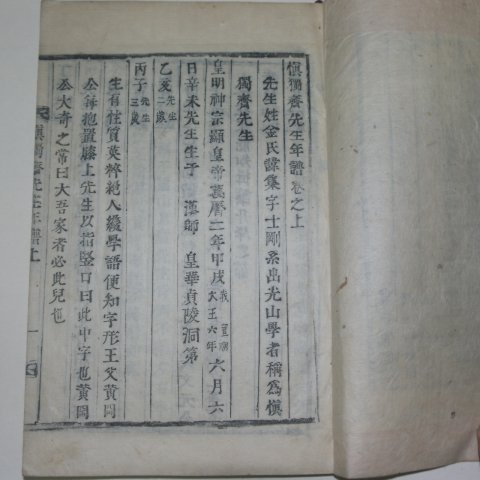 愼獨齋先生年譜卷之上
先生姓金氏諱集字士剛系出光山學者稱爲愼
獨齋先生
皇明神宗顯皇帝萬曆二年甲戌我宣廟大王六年六月六
日辛未先生生于 漢師 皇華貞陵洞第
乙亥先生二歲
丙子先生三歲
生有恠質英粹絕人纔學語便知字形王父黃岡
公每抱置膝上先生以指竪口曰此中字也黃岡
公大奇之常曰大吾家者必此兒也
愼獨齋先生年譜上
一